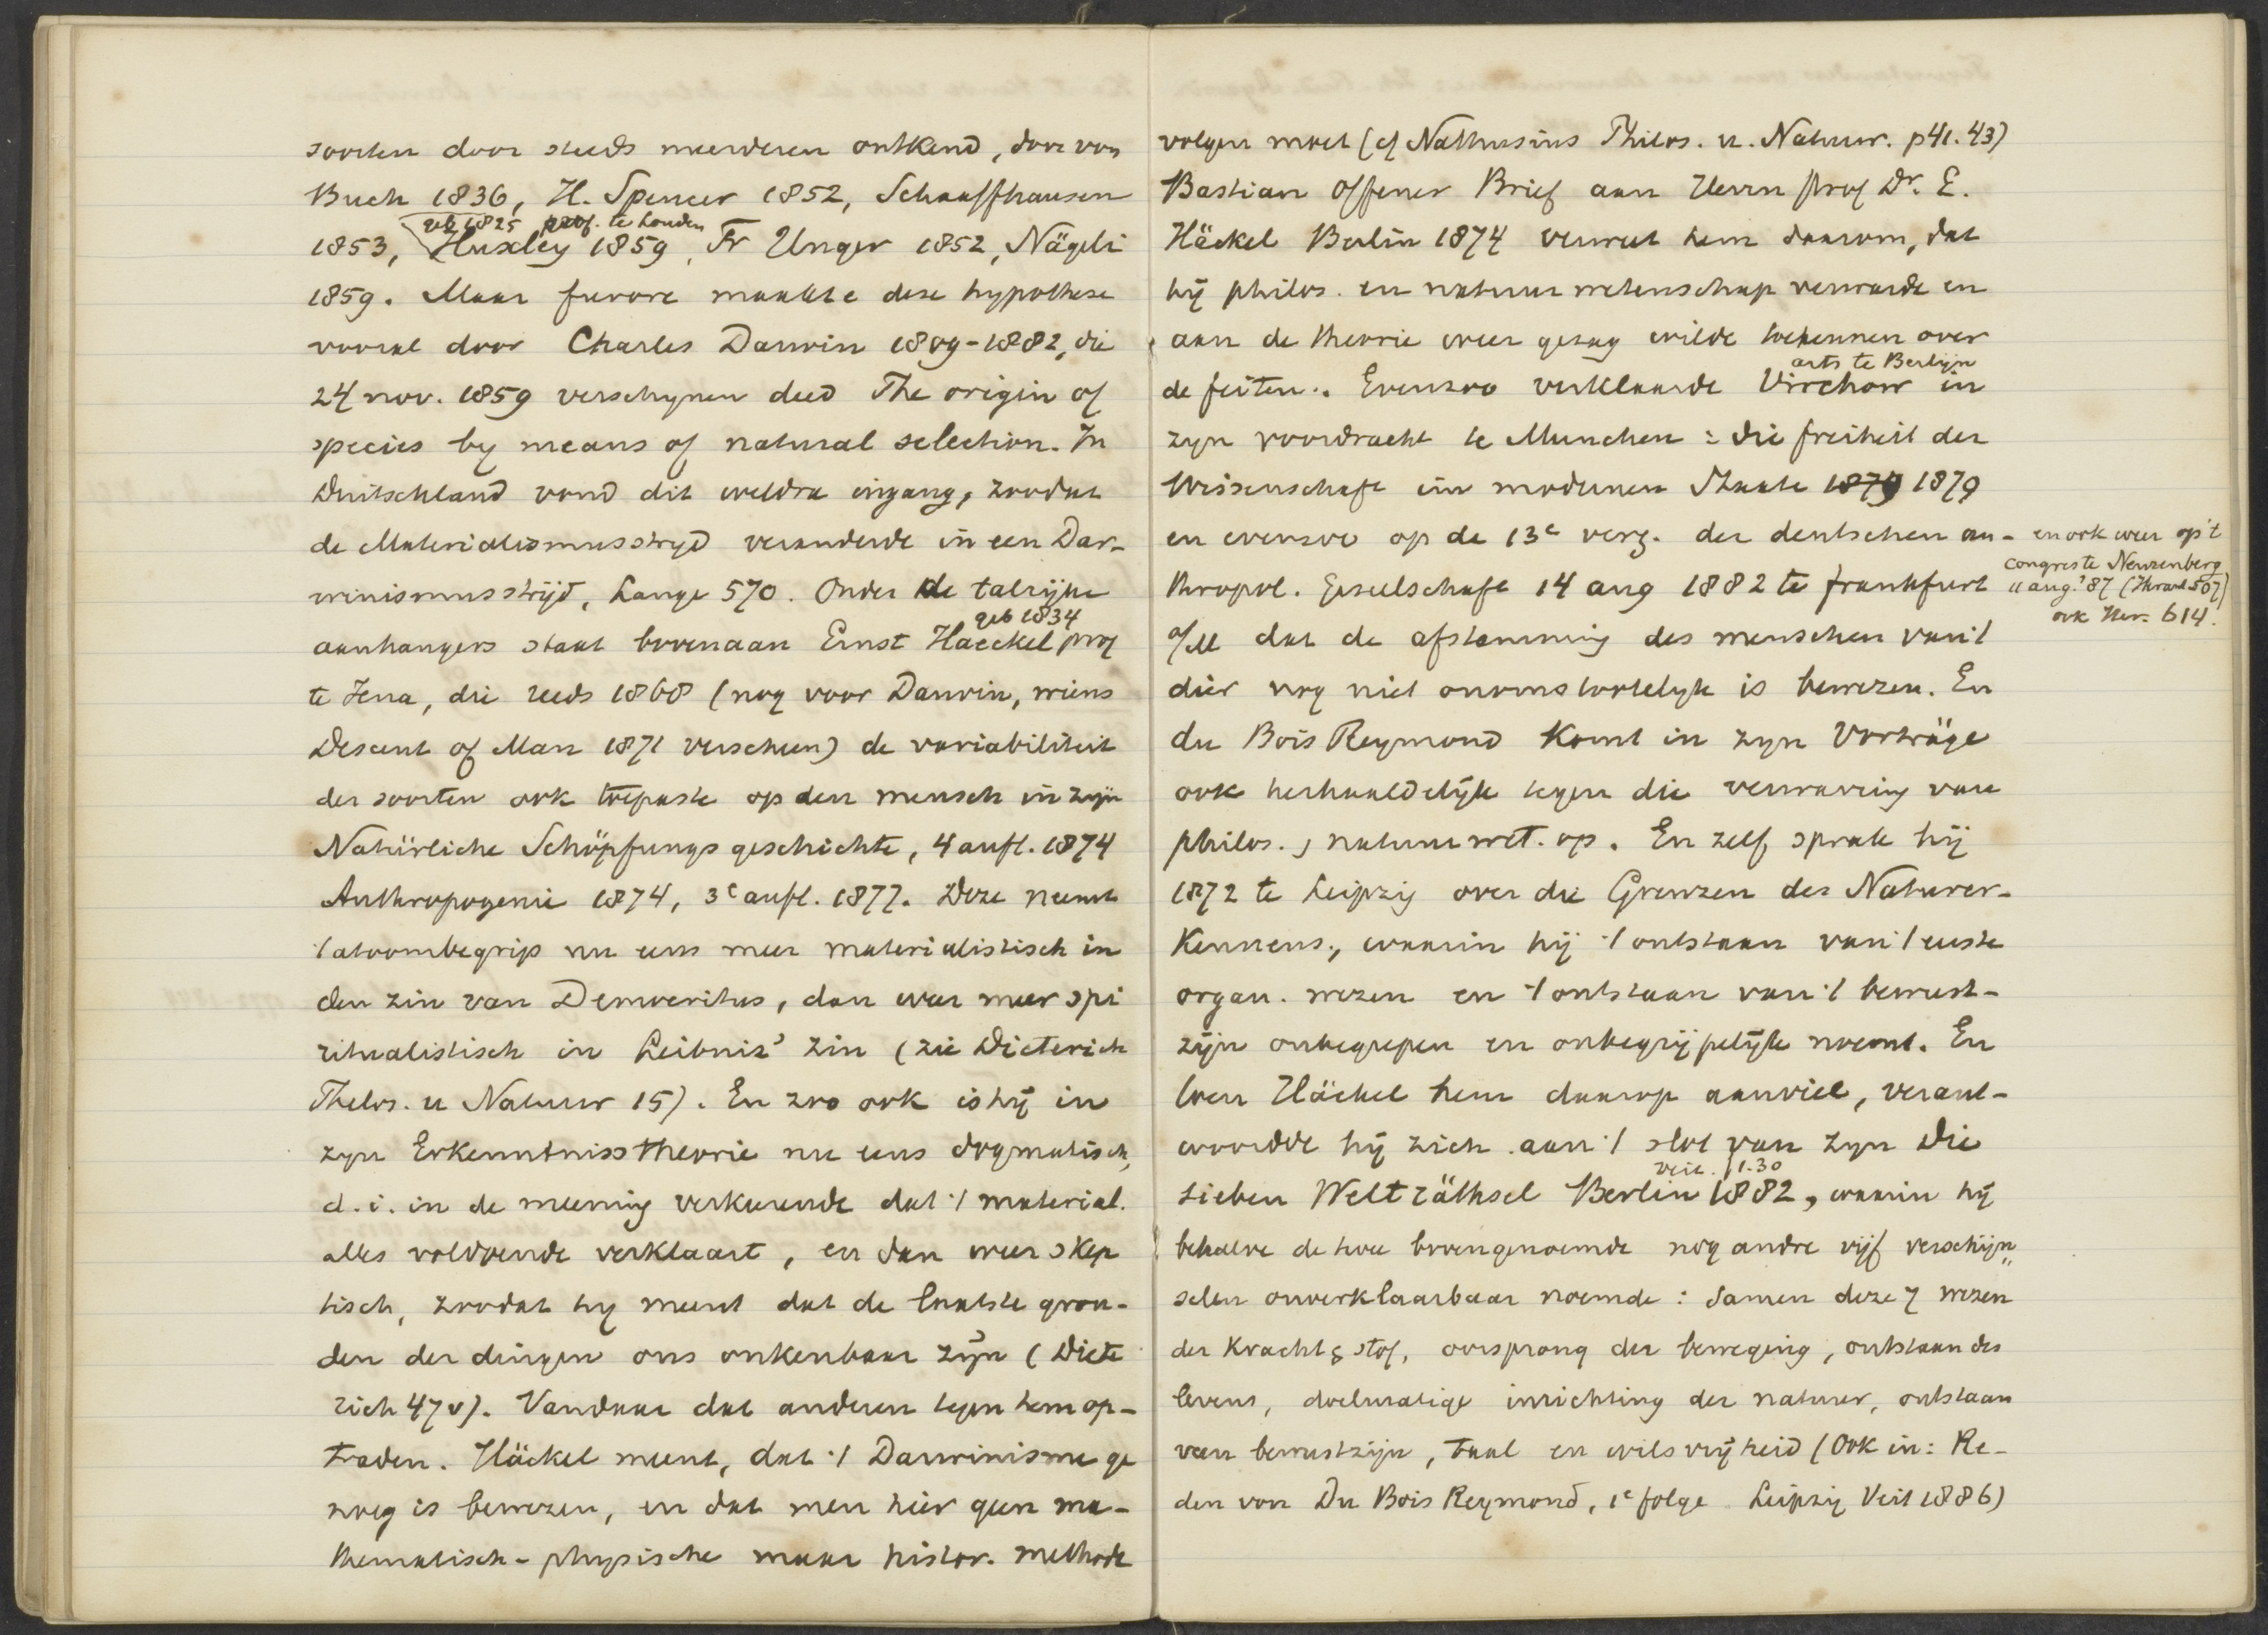 soorten door steeds meerderen ontkend, door von
Buch 1836, H. Spencer 1852, Schaaffhausen
geb 1825 prof. te Londen
1853, Huxley 1859, Fr Unger 1852, Nägeli
1859. Maar furore maakte deze hypothese
vooral door Charles Darwin 1809-1882, die
24 nov. 1859 verschynen deed The origin of
species by means of natural selection. In
Duitschland vond dit weldra ingang, zoodat
de Materialismusstryd veranderde in een Dar-
winismusstrijd, Lange 570. Onder de talryke
geb 1834
aanhangers staat bovenaan Ernst Haeckel prof
te Jena, die reeds 1868 (nog voor Darwin, wiens
Descent of Man 1871 verscheen) de variabiliteit
der soorten ook toepaste op den mensch in zijn
Natürliche Schöpfungsgeschichte, 4 aufl. 1874
Anthropogenie 1874, 3e aufl. 1877. Deze neemt
't atoombegrip nu eens meer materialistisch in
den zin van Democritus, dan weer meer spi
ritualistisch in Leibniz' zin (zie Dieterich
Philos. u Natuur 15). En zoo ook is hij in
zyn Erkenntnisstheorie nu eens dogmatisch,
d.i. in de meening verkeerende dat 't material.
alles voldoende verklaart, en dan weer skep
tisch, zoodat hy meent dat de laatste gron-
den der dingen ons onkenbaar zijn (Diete
rich 47v). Vandaar dat anderen tegen hem op-
traden. Häckel meent, dat 't Darwinisme ge
noeg is bewezen, en dat men hier geen ma-
thematisch-physische maar histor. methode
volgen moet (cf Nathusius Philos. u. Natuur. p41.43)
Bastian Offener Brief aan Herrn Prof Dr. E.
Häckel Berlin 1874 verweet hem daarom, dat
hij philos. en natuurwetenschap verwarde en
aan de theorie weer gezag wilde toekennen over
arts te Berlijn
de feiten. Evenzoo verklaarde Virchow in
zyn voordracht te Munchen: die freiheit der
Wissenschaft im modernen Staate 1874 1879
en evenzoo op de 13e verg. der deutschen an-
thropol. Gesellschaft 14 aug 1882 te Frankfurt
en ook weer op 't
congres te Neurenberg
11 aug. '87 (
614.
a/M dat de afstamming des menschen van 't
dier nog niet onomstootelyk is bewezen. En
du Bois Reymond komt in zyn Vorträge
ook herhaaldelijk tegen die verwarring van
philos., natuurwet. op. En zelf sprak hij
1872 te Leipzig over die Grenzen des Naturer-
kennens, waarin hij 't ontstaan van 't eerste
organ. wezen en 't ontstaan van 't bewust-
zijn onbegrepen en onbegrijpelijk noemt. En
toen Häckel hem daarop aanviel, verant-
woordde hij zich aan 't slot van zyn Die
Veit. f 1.30
sieben Welträthsel Berlin 1882, waarin hij
behalve de twee bovengenoemde nog andre vijf verschijn„
selen onverklaarbaar noemde: Samen deze 7 wezen
der kracht & stof, oorsprong der beweging, ontstaan des
levens, doelmatige inrichting der natuur, ontstaan
van bewustzijn, taal en wilsvrijheid (Ook in: Re-
den von Du Bois Reymond, 1e folge Leipzig Veit 1886)